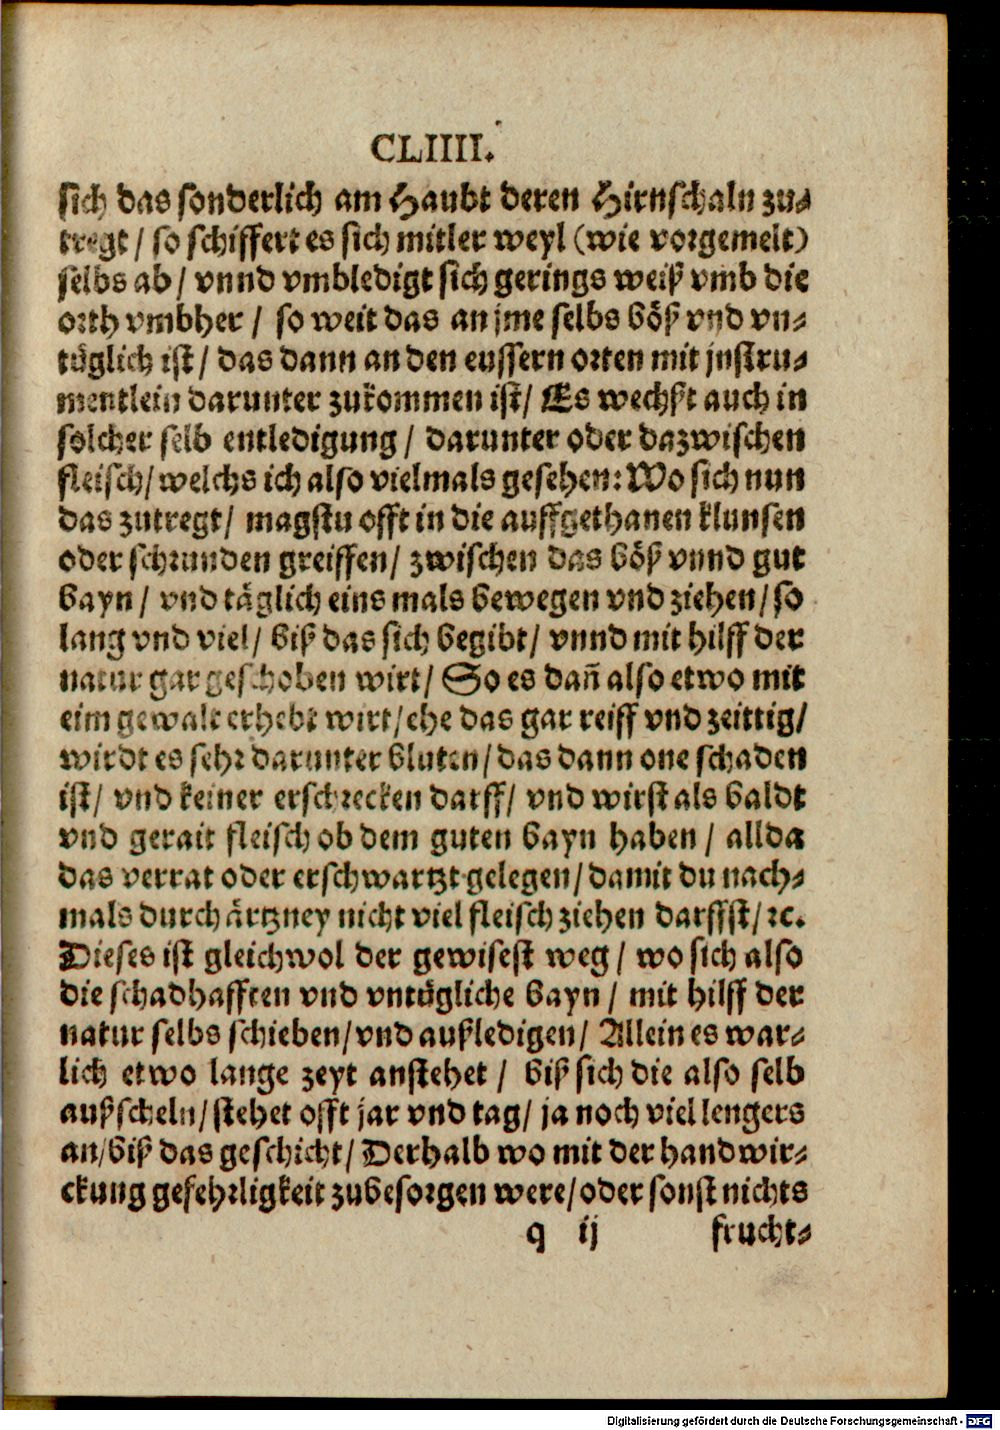 CLIIII.
sich das sonderlich am Haubt deren Hirnschaln zu⸗
tregt / so schiffert es sich mitler weyl (wie vorgemelt)
selbs ab / vnnd vmbledigt sich gerings weiß vmb die
orth vmbher / so weit das an jme selbs böß vnd vn⸗
tüglich ist / das dann an den eussern orten mit jnstru⸗
mentlein darunter zukommen ist / Es wechst auch in
solcher selb entledigung / darunter oder dazwischen
fleisch / welchs ich also vielmals gesehen: Wo sich nun
das zutregt / magstu offt in die auffgethanen klunsen
oder schrunden greiffen / zwischen das böß vnnd gut
bayn / vnd täglich eins mals bewegen vnd ziehen / so
lang vnd viel / biß das sich begibt / vnnd mit hilff der
natur gar geschoben wirt / So es dañ also etwo mit
eim gewalt erhebt wirt / ehe das gar reiff vnd zeittig /
wirdt es sehr darunter bluten / das dann one schaden
ist / vnd keiner erschrecken darff / vnd wirst als baldt
vnd gerait fleisch ob dem guten bayn haben / allda
das verrat oder erschwartzt gelegen / damit du nach⸗
mals durch ärtzney nicht viel fleisch ziehen darffst / ꝛc.
Dieses ist gleichwol der gewisest weg / wo sich also
die schadhafften vnd vntügliche bayn / mit hilff der
natur selbs schieben / vnd außledigen / Allein es war⸗
lich etwo lange zeyt anstehet / biß sich die also selb
außscheln / stehet offt jar vnd tag / ja noch viel lengers
an / biß das geschicht / Derhalb wo mit der handwir⸗
ckung gefehrligkeit zubesorgen were / oder sonst nichts
q ij frucht⸗
Digitalisierung gefördert durch die Deutsche Forschungsgemeinschaft - DFG